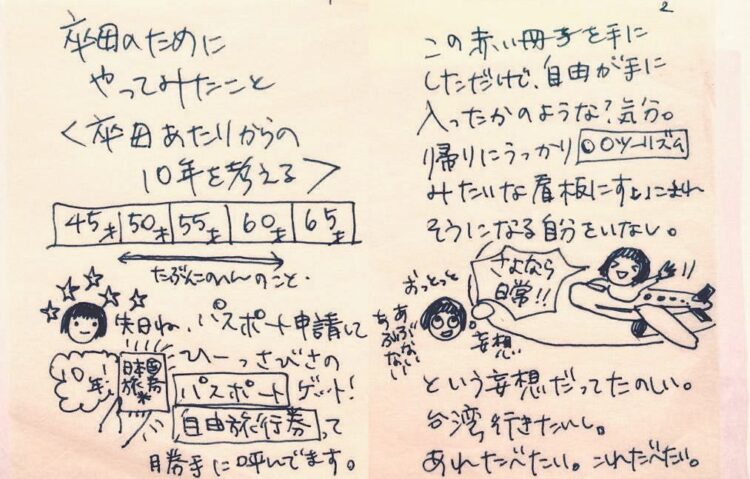 卒母のために
やってみたこと
＜卒母あたりからの
10年を考える＞
45才 50才 55才 60才 65才
たぶんこのへんのこと・
先日ね、パスポート申請して
ひーっさびさの
パスポート ゲット!
自由旅行券って
勝手に呼んでます。
10年
日本国旅券
2
この赤い冊子を手に
しただけで、自由が手に
入ったかのような?気分。
帰りにうっかり ○○ツーリズム
みたいな看板にすいこまれ
そうになる自分をいない。
さよなら
日常!!
おっとっと
あぶない
あぶない
妄想
という妄想だってたのしい。
台湾行きたいし。
あれたべたい。これたべたい。